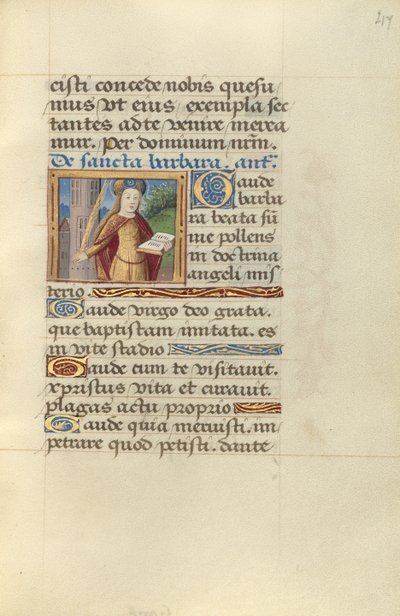 217
cisti concede nobis quesu
mus vt eius exempla sec
tantes ad te venire merea
mur. Per dominum nr̄m.
De sancta barbara. ant̄.
Gaude
barba
ra beata sū
me pollens
in doctrina
angeli mis
terio.
Gaude virgo deo grata.
que baptistam imitata. es
in vite stadio
Gaude cum te visitauit.
xp̄ristus vita et curauit.
plagas actu proprio
Gaude quia meruisti. im
petrare quod petisti. dante